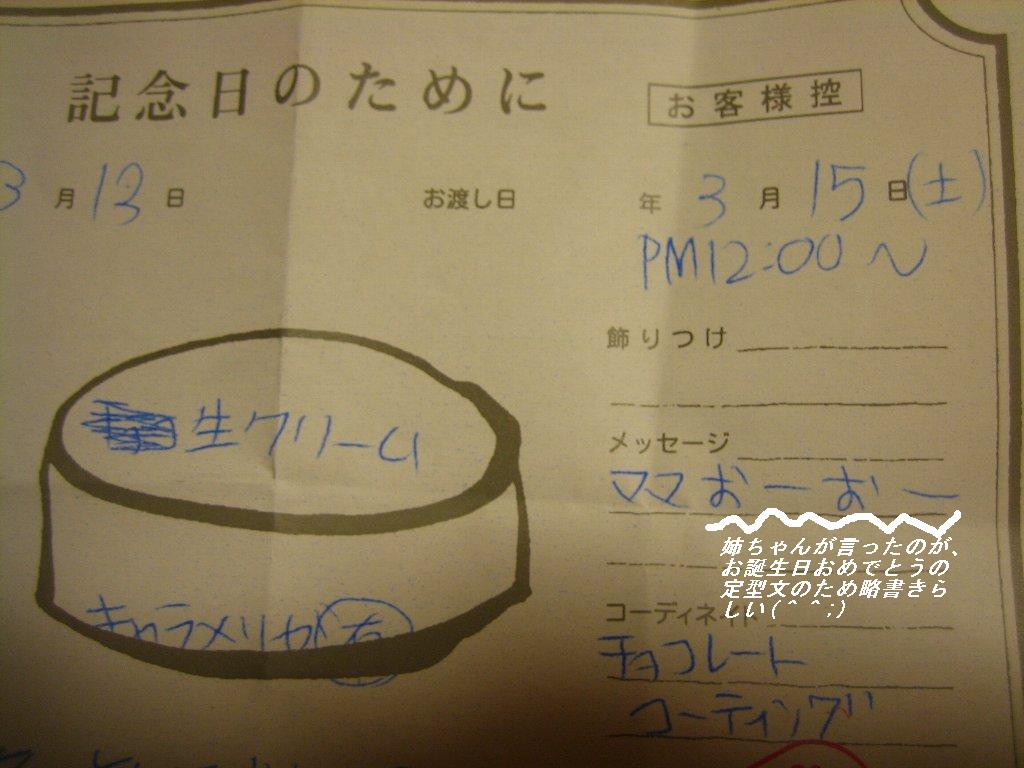 記念日のために
お客様控
3月13日
お渡し日 年3月15日(土)
PM12:00〜
飾りつけ
生クリーム
メッセージ
ママおーおー
姉ちゃんが言ったのが、
お誕生日おめでとうの
定型文のため略書きら
しい(＾＾;)
コーディネイト
チョコレート
コーティング
キャラメリゼ(有)